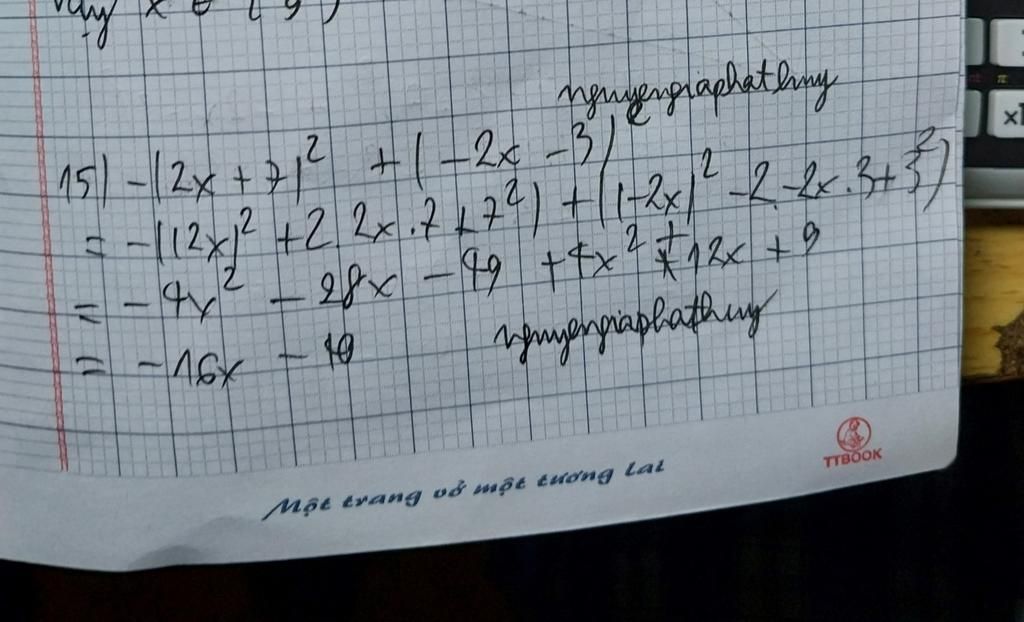 Vậy x ∈ { 9 }
nguyengiaphathuy
15) -(2x + 7)² + (-2x - 3)²
= -((2x)² + 2.2x.7 + 7²) + ((-2x)² - 2.-2x.3 + 3²)
= -4x² - 28x - 49 + 4x² + 12x + 9
= -16x - 40
nguyengiaphathuy
Một trang vở một tương lai
TTBOOK